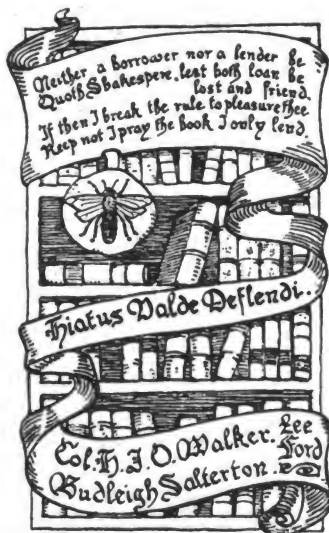 Neither a borrower nor a lender be
Quoth Shakespere, lest both loan be
lost and friend.
If then I break the rule to pleasure thee
Keep not I pray the book I only lend.
Hiatus Valde Deflendi..
Col. H. J. O. Walker.
Lee
Ford
Budleigh Salterton.